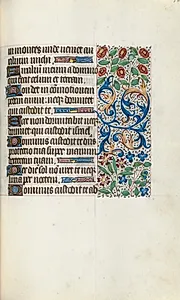 in montes unde veniet au
xilium michi
Auxilium meum a domino
qui fecit celum et terram
Non det in commotionem
pedem tuum neque dormitet
qui custodit te
Ecce non dormitabit neque
dormiet qui custodit israel
Dominus custodit te dominus
protectio tua super manum
dexteram tuam
Per diem sol non uret te neque
luna per noctem
Dominus custodit te ab